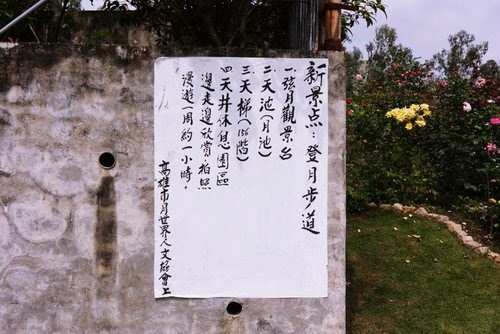 新景点：登月步道
一弦月觀景台
二天池(月池)
三天梯(156階)
四天井休息園區
邊走邊欣賞、拍照
漫遊一周約一小時。
高雄市月世界人文協會上